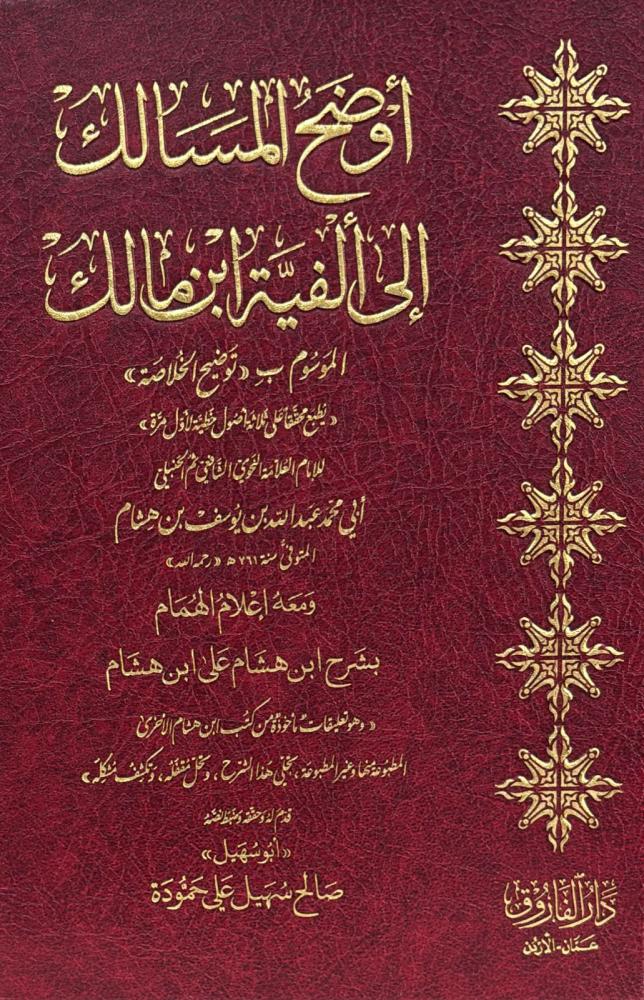 أوضَحُ المَسَالك
إلى ألفيَّة ابن مالك
المَوسُوم بـِ «تَوضِيح الخُلاصَة»
«يُطبع محقّقاً على ثلاثة أصُول خطّيّة لأوّل مرّة»
للإمام العَلّامة النّحويّ الشّافعيّ ثم الحنبليّ
أبي محمّد عبدالله بن يُوسف بن هِشام
المتوفَّى سنة ٧٦١ ھ «رحمه الله»
وَمَعَهُ إعْلامُ الهُمَام
بشَرح ابن هشَام عَلىٰ ابن هشَام
«وهو تعليقات مأخوذة من كتب ابن هشام الأخرىٰ
المطبوعة منها وغير المطبوعة، تجلّي هذا الشّرح، وتحلّ مقفله، وتكشف مشكله»
قدّم له وحققه وضبط نصّه
«أبُو سُهَيل»
صَالح سُهَيل عَلي حَمّودَة
دَارُ الفَارُوق
عَمّان-الأردُن